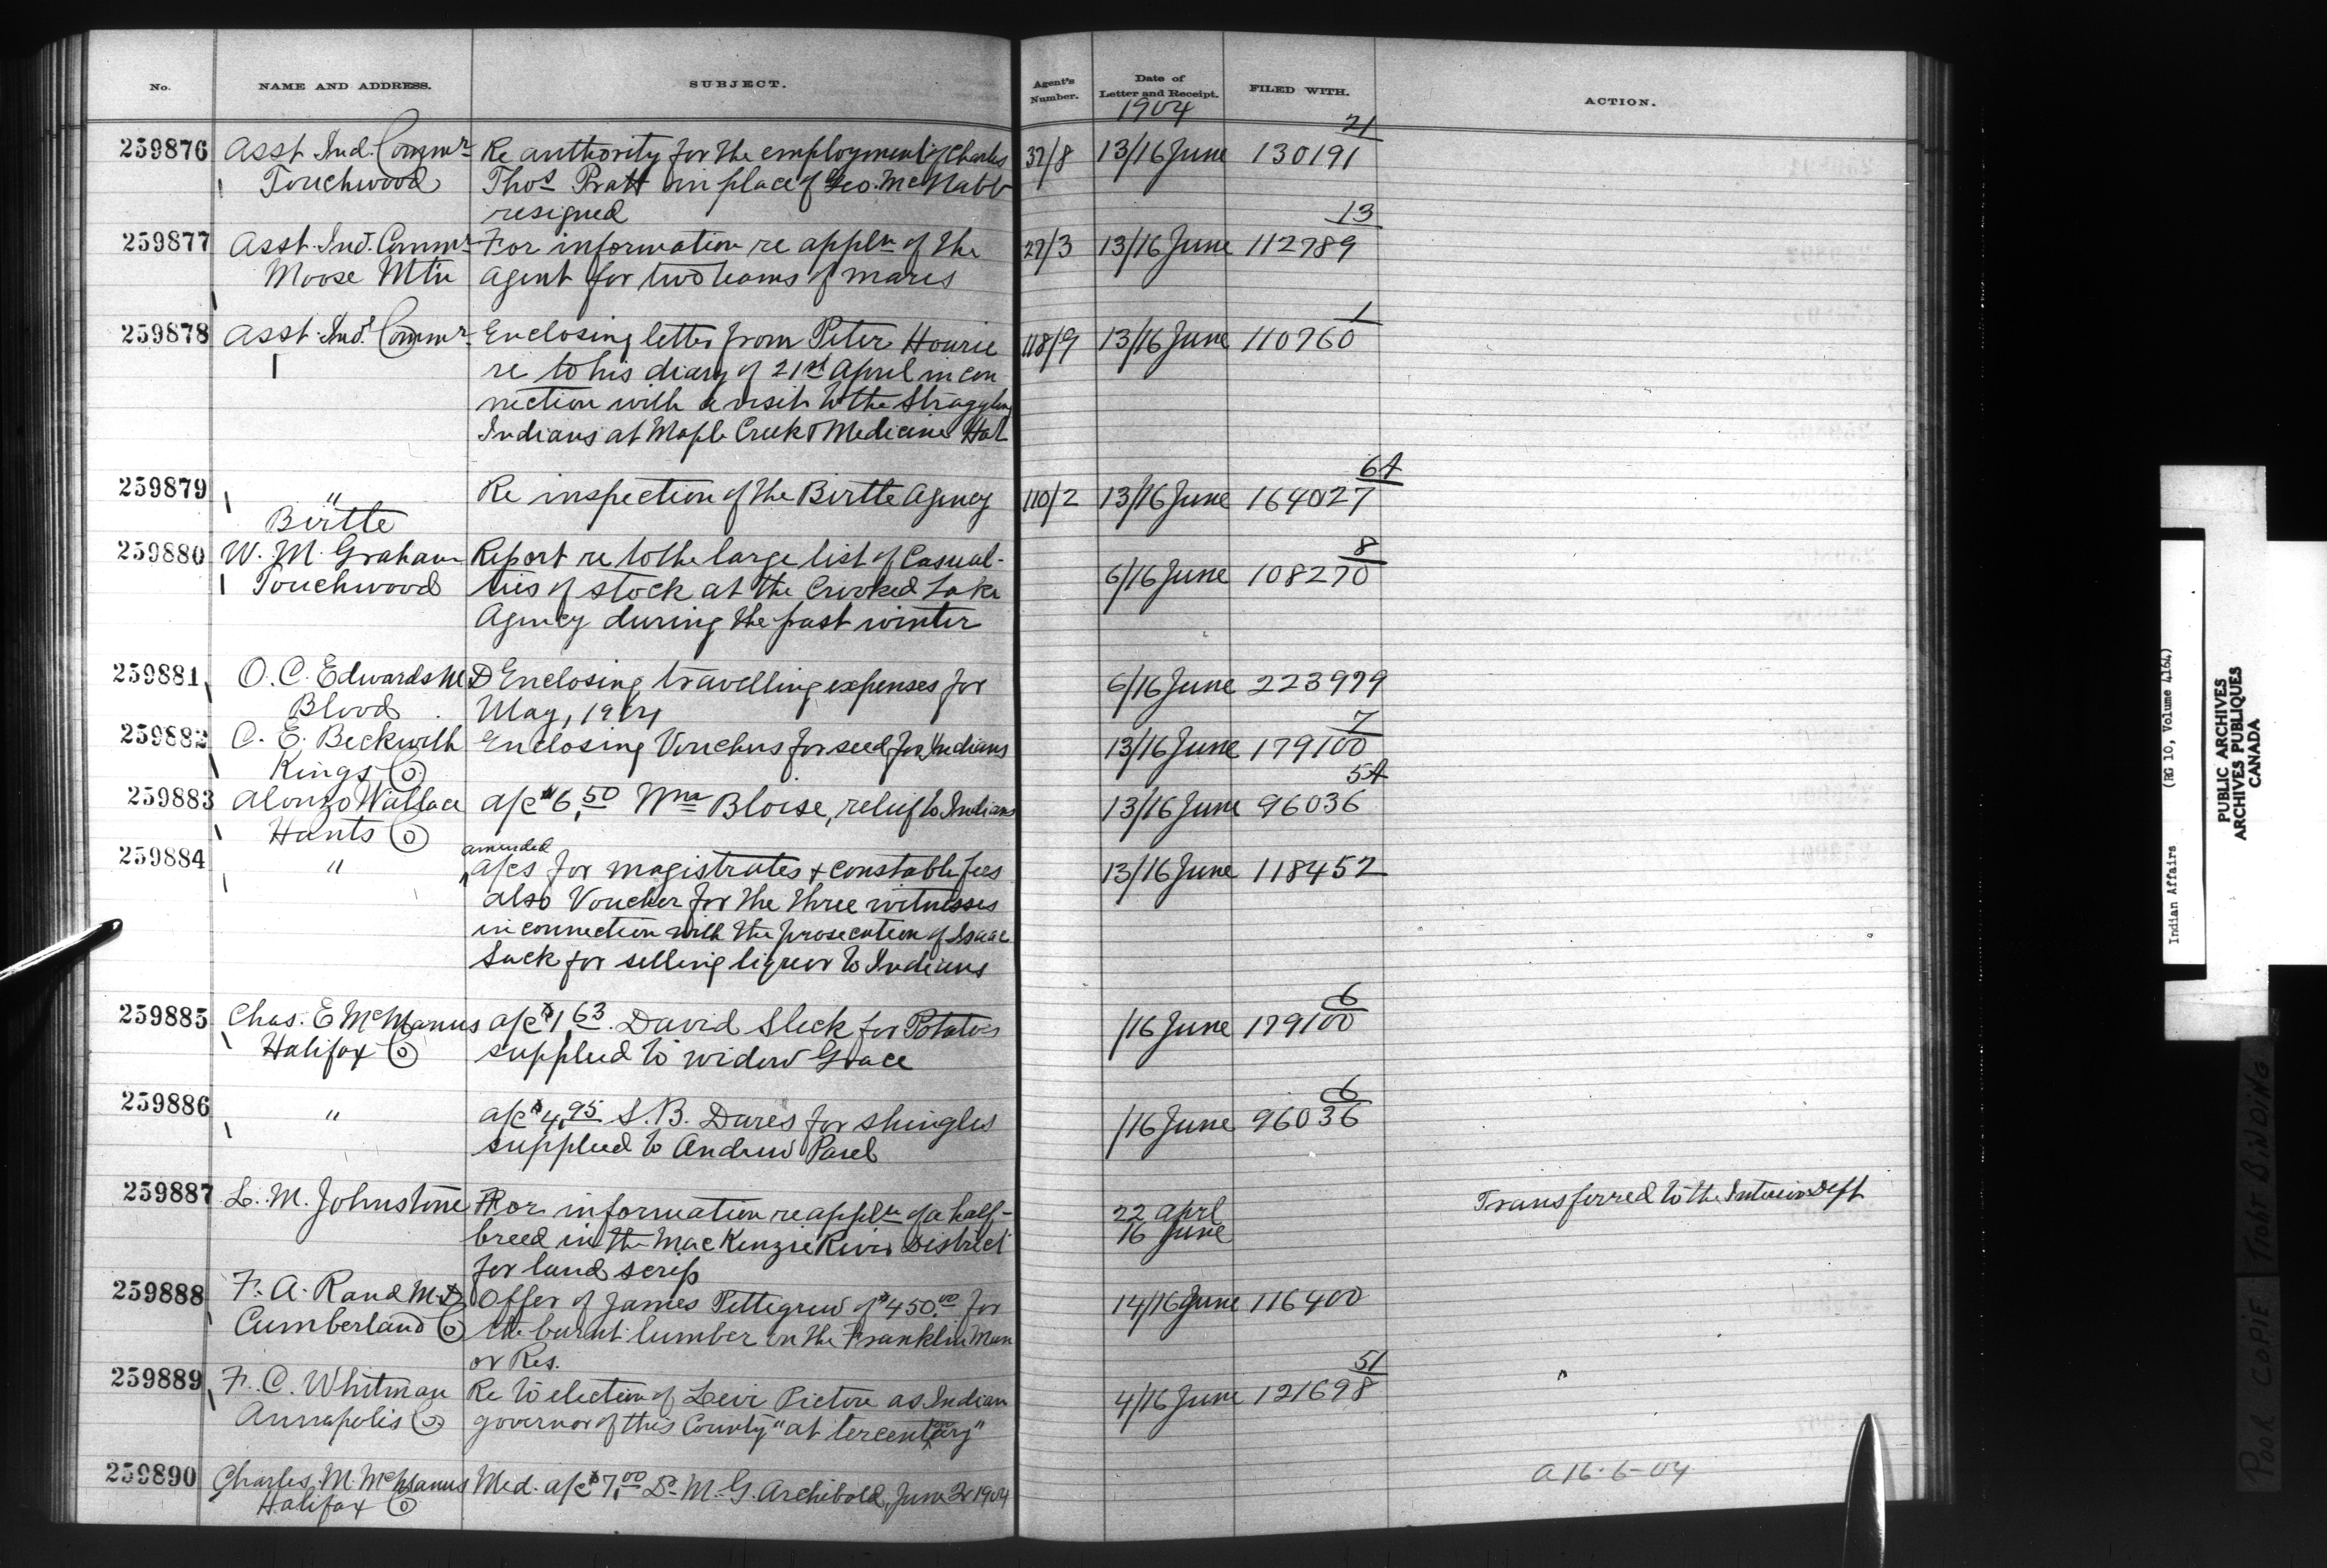 No. NAME AND ADDRESS. SUBJECT. Agent's Number. Date of Letter and Receipt. FILED WITH. ACTION.
1904
21
259876 Asst Ind. Commr Re authority for the employment of Charles 32/8 13/16 June 130191
Touchwood Thos Pratt in place of Geo. McNabb
resigned
13
259877 Asst. Ind. Commr For information re appln of the 27/3 13/16 June 112789
Moose Mtn Agent for two teams of mares
1
259878 Asst. Ind. Commr Enclosing letter from Peter Hourie 118/9 13/16 June 110760
re to his diary of 21st April in con
nection with a visit to the Straggling
Indians at Maple Creek & Medicine Hat
64
259879 " Re inspection of the Birtle Agency 110/2 13/16 June 164027
Birtle
8
259880 W. M. Graham Report re to the large list of Casual-
Touchwood ties of stock at the Crooked Lake 6/16 June 108270
Agency during the past winter
259881 O. C. Edwards M.D Enclosing travelling expenses for 6/16 June 223979
Blood May, 1904
7
259882 C. E. Beckwith Enclosing Vouchers for seed for Indians 13/16 June 179100
Kings Co
54
259883 Alonzo Wallace a/c $6.50 Wm Bloise, relief to Indians 13/16 June 96036
Hants Co
amended
259884 " a/cs for magistrates & constable fees 13/16 June 118452
also Voucher for the three witnesses
in connection with the prosecution of Isaac
Sack for selling liquor to Indians
6
259885 Chas. E McManus a/c $1.63. David Sleek for Potatoes /16 June 179100
Halifax Co supplied to widow Grace
6
259886 " a/c $4.95 S. B. Dares for shingles /16 June 96036
supplied to Andrew Paul
259887 L. M. Johnstone For information re appln of a half- 22 aprl Transferred to the Interior Dept
breed in the MacKenzie River District 16 June
for land scrip
259888 F. A. Rand M.D Offer of James Pettegrew of $450.00 for 14/16 June 116400
Cumberland Co the burnt lumber on the Franklin Man
or Res.
51
259889 F. C. Whitman Re to election of Levi Pictou as Indian 4/16 June 121698
Annapolis Co governor of this County "at tercentary"
259890 Charles M. McManus Med. a/c $7.00 Dr M. G. Archibold, June 2 1904 A 16-6-04
Halifax Co
Indian Affairs (RG 10, Volume 4164)
PUBLIC ARCHIVES
ARCHIVES PUBLIQUES
CANADA
POOR COPIE TIGHT BINDING